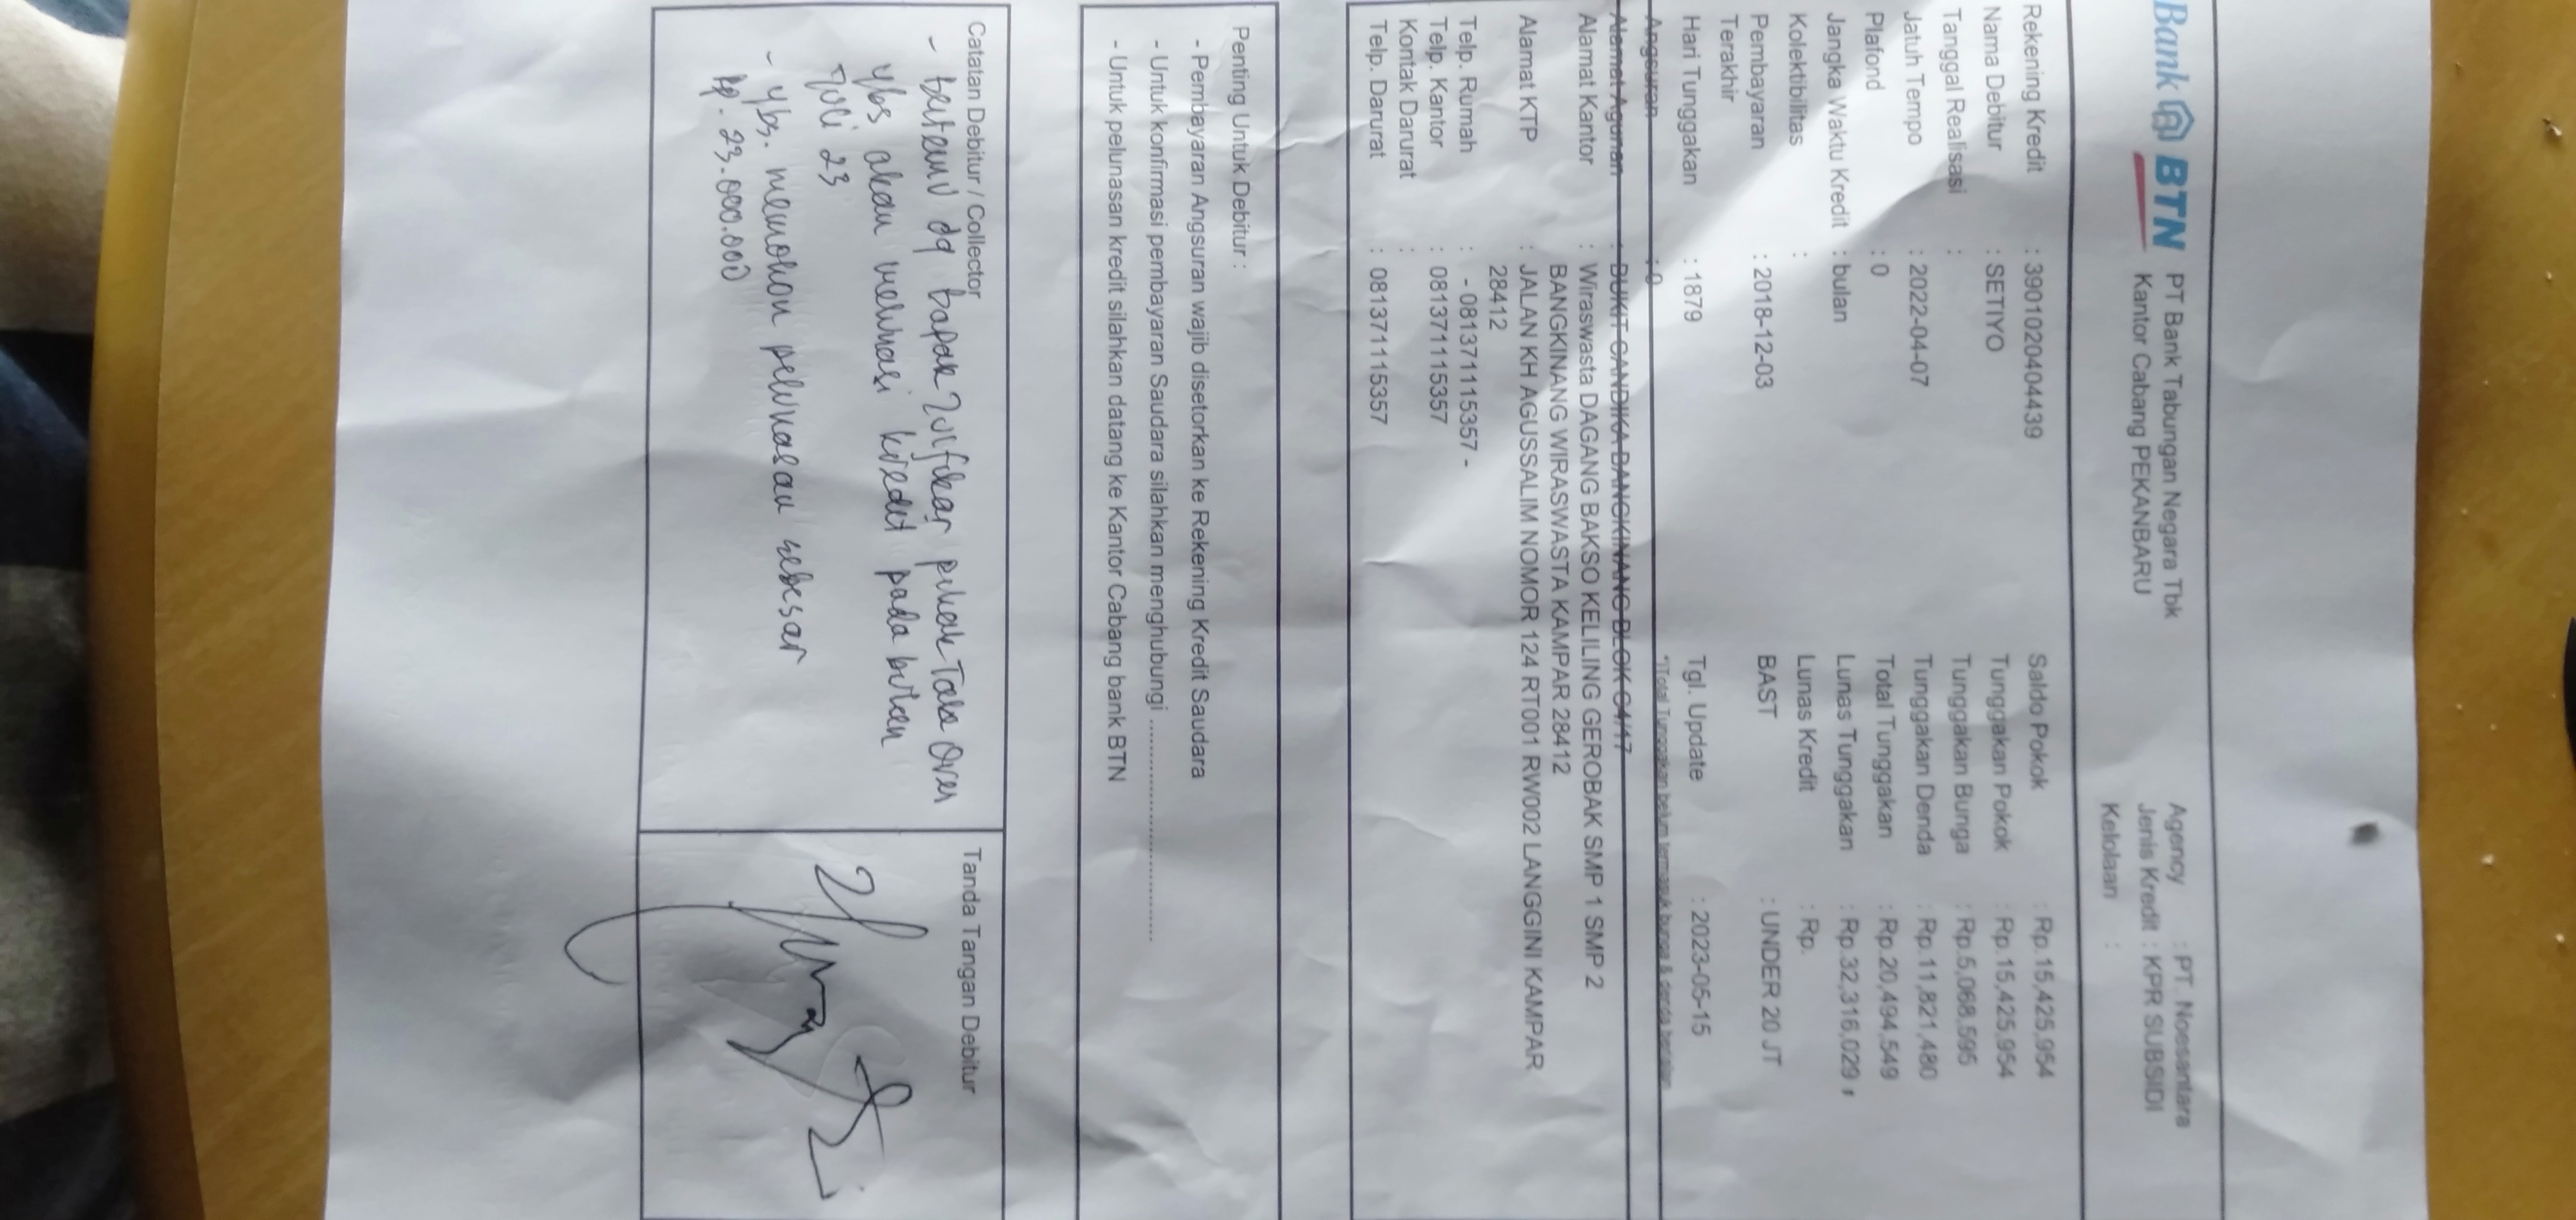 Bank BTN
PT Bank Tabungan Negara Tbk
Kantor Cabang PEKANBARU
Agency : PT. Noesantara
Jenis Kredit : KPR SUBSIDI
Kelolaan :
Rekening Kredit : 3901020404439
Nama Debitur : SETIYO
Tanggal Realisasi :
Jatuh Tempo : 2022-04-07
Plafond : 0
Jangka Waktu Kredit : bulan
Kolektibilitas :
Pembayaran Terakhir : 2018-12-03
Hari Tunggakan : 1879
Angsuran : 0
Saldo Pokok : Rp.15,425,954
Tunggakan Pokok : Rp.15,425,954
Tunggakan Bunga : Rp.5,068,595
Tunggakan Denda : Rp.11,821,480
Total Tunggakan : Rp.20,494,549
Lunas Tunggakan : Rp.32,316,029
Lunas Kredit : Rp.
BAST : UNDER 20 JT
Tgl. Update : 2023-05-15
*)Total Tunggakan belum termasuk bunga & denda berjalan
Alamat Agunan : BUKIT CANDIKA BANGKINANG BLOK C4/17
Alamat Kantor : Wiraswasta DAGANG BAKSO KELILING GEROBAK SMP 1 SMP 2
BANGKINANG WIRASWASTA KAMPAR 28412
Alamat KTP : JALAN KH AGUSSALIM NOMOR 124 RT001 RW002 LANGGINI KAMPAR
28412
Telp. Rumah : - 081371115357 -
Telp. Kantor : 081371115357
Kontak Darurat :
Telp. Darurat : 081371115357
Penting Untuk Debitur :
- Pembayaran Angsuran wajib disetorkan ke Rekening Kredit Saudara
- Untuk konfirmasi pembayaran Saudara silahkan menghubungi ..............................
- Untuk pelunasan kredit silahkan datang ke Kantor Cabang bank BTN
Catatan Debitur / Collector
- bertemu dg bapak Zulfikar pihak Take Over
ybs akan melunasi kredit pada bulan
Juli 23
- ybs. memohon pelunasan sebesar
Rp. 23.000.000
Tanda Tangan Debitur